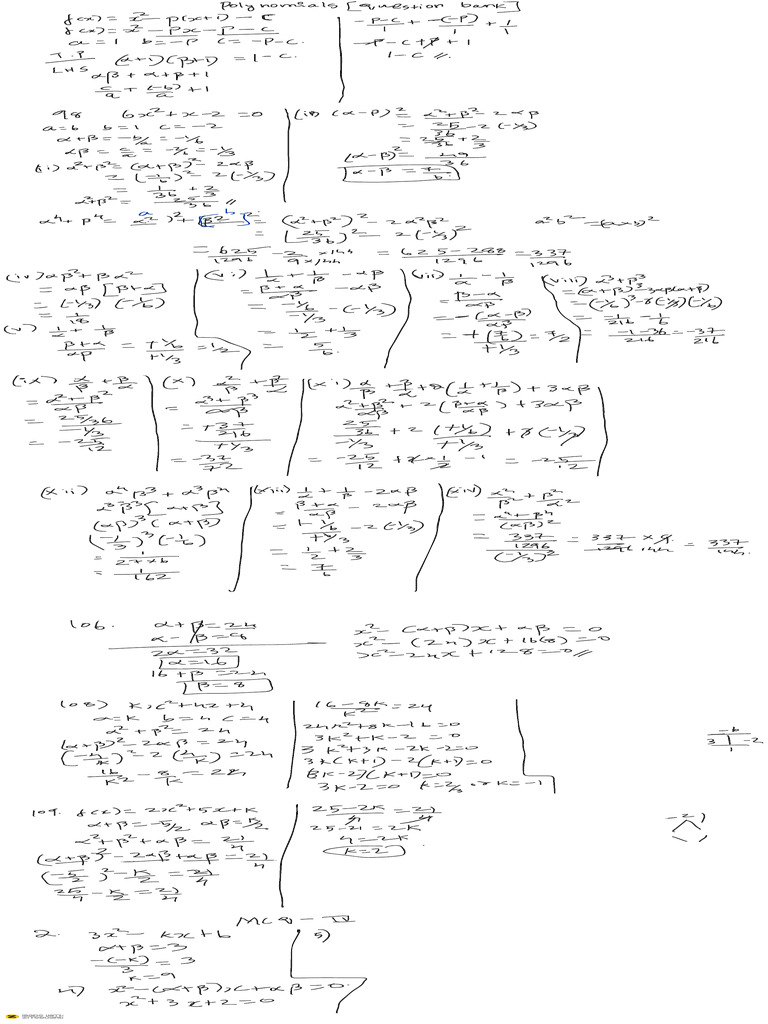 Polynomials [question bank]
f(x) = x² - p(x+1) - c
f(x) = x² - px - p - c
a = 1 b = -p c = -p-c
T.P (α+1)(β+1) = 1-c.
LHS αβ + α+β+1
c/a + (-b)/a + 1
-p-c/1 + -(-p)/1 + 1/1
-p-c+p+1
1-c //.
98 6x²+x-2 = 0
a=6 b=1 c=-2
α+β = -b/a = -1/6
αβ = c/a = -2/6 = -1/3
(i) α²+β² = (α+β)² - 2αβ
= (-1/6)² - 2(-1/3)
= 1/36 + 2/3
α²+β² = 25/36 //
(ii) (α-β)² = α²+β² - 2αβ
= 25/36 - 2(-1/3)
= 25/36 + 2/3
(α-β)² = 49/36
α-β = 7/6
α⁴+β⁴ = (α²)² + (β²)² = (α²+β²)² - 2α²β²
a b
= [25/36]² - 2(-1/3)²
a²b² = (a×b)²
= 625/1296 - 2/9 ×144/×144 = 625-288/1296 = 337/1296
(iv) αβ²+βα²
= αβ[β+α]
= (-1/3)(-1/6)
= 1/18
(v) 1/α + 1/β
β+α/αβ = +1/6/+1/3 = 1/2
(vi) 1/α + 1/β - αβ
= β+α/αβ - αβ
= -1/6/-1/3 - (-1/3)
= 1/2 + 1/3
= 5/6.
(vii) 1/α - 1/β
= β-α/αβ
= -(α-β)/αβ
= +(7/6)/+1/3 = 7/2
(viii) α³+β³
= (α+β)³-3αβ(α+β)
= (-1/6)³-3(-1/3)(-1/6)
= -1/216 - 1/6
= -1-36/216 = -37/216
(ix) α/β + β/α
= α²+β²/αβ
= 25/36/-1/3
= -25/12
(x) α²/β + β²/α
= α³+β³/αβ
= +37/216/+1/3
= -37/72
(xi) α/β + β/α + 2(1/α + 1/β) + 3αβ
α²+β²/αβ + 2(β+α/αβ) + 3αβ
25/36/-1/3 + 2(+1/6)/+1/3 + 3(-1/3)
= -25/12 + 2×1/2 - 1 = -25/12
(xii) α⁴β³ + α³β⁴
α³β³[α+β]
(αβ)³(α+β)
(-1/3)³(-1/6)
= 1/27×6
= 1/162
(xiii) 1/α + 1/β - 2αβ
= β+α/αβ - 2αβ
= +1/6/+1/3 - 2(-1/3)
= 1/2 + 2/3
= 7/6
(xiv) α²/β² + β²/α²
= α⁴+β⁴/(αβ)²
= 337/1296/(-1/3)² = 337/1296 × 9/144 = 337/144.
106. α+β = 24
α-β = 8
2α = 32
α = 16
16+β = 24
β = 8
x² - (α+β)x + αβ = 0
x² - (24)x + 16(8) = 0
x² - 24x + 128 = 0 //
108) kx²+4x+4
a=k b=4 c=4
α²+β² = 24
(α+β)²-2αβ = 24
(-4/k)² - 2(4/k) = 24
16/k² - 8/k = 24
16-8k/k² = 24
24k²+8k-16=0
3k²+k-2=0
3k²+3k-2k-2=0
3k(k+1)-2(k+1)=0
(3k-2)(k+1)=0
3k-2=0 k=2/3 or k=-1
-6
3 -2
1
109. f(x) = 2x²+5x+k
α+β = -5/2 αβ = k/2
α²+β²+αβ = 21/4
(α+β)²-2αβ+αβ = 21/4
(-5/2)² - k/2 = 21/4
25/4 - k/2 = 21/4
25-2k/4 = 21/4
25-21 = 2k
4 = 2k
k=2
MCQ - IV
2. 3x² - kx + 6
α+β = 3
-(-k)/3 = 3
k = 9
4) x²-(α+β)x+αβ = 0.
x²+3x+2 = 0
5)